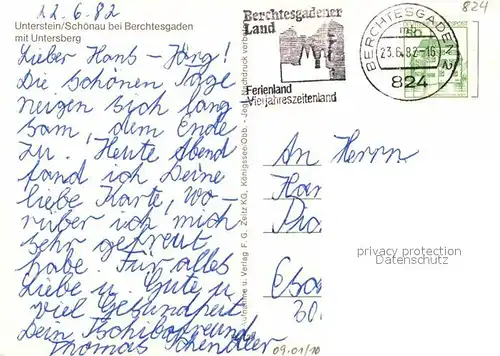 22.6.82
824
Unterstein/Schönau bei Berchtesgaden
mit Untersberg
Lieber Hans-Jörg!
Die schönen Tage
neigen sich lang
sam, dem Ende
zu. Heute Abend
fand ich Deine
liebe Karte, wo-
rüber ich mich
sehr gefreut
habe. Für alles
Liebe u. Gute u
viel Gesundheit
Dein Tschibofreund
Thomas
Berchtesgadener
Land
Ferienland
Vierjahreszeitenland
BERCHTESGADEN 2
mb
23.6.82-16
824
Aufnahme u. Verlag F. G. Zeitz KG., Königssee/Obb.
An Herrn
Han
privacy protection
Datenschutz
30
09.01/10